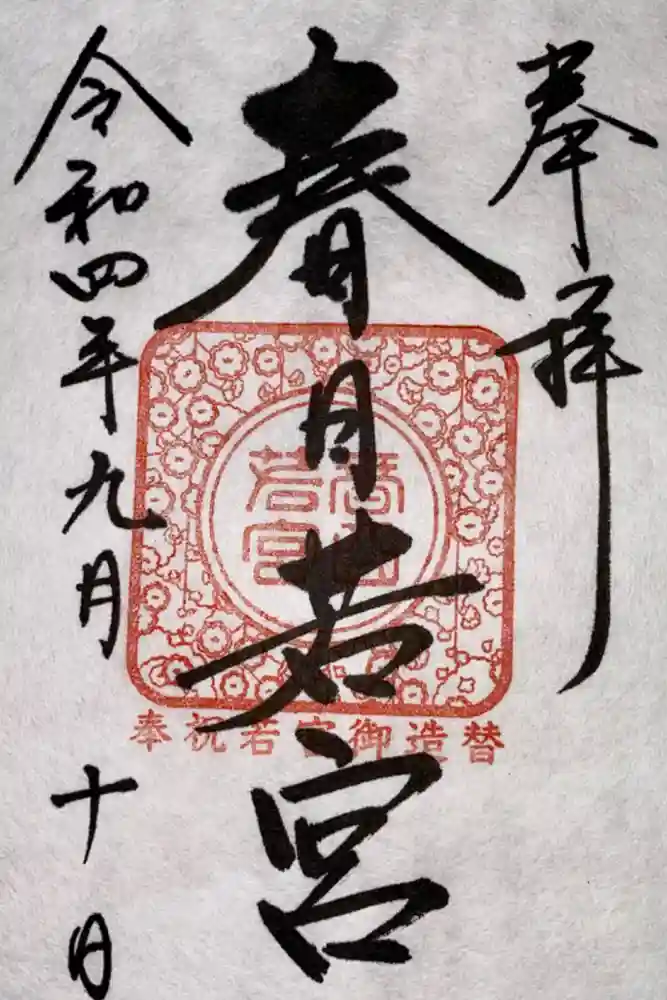 奉拝
春日若宮
令和四年九月十日
若宮
奉祝若宮御造替